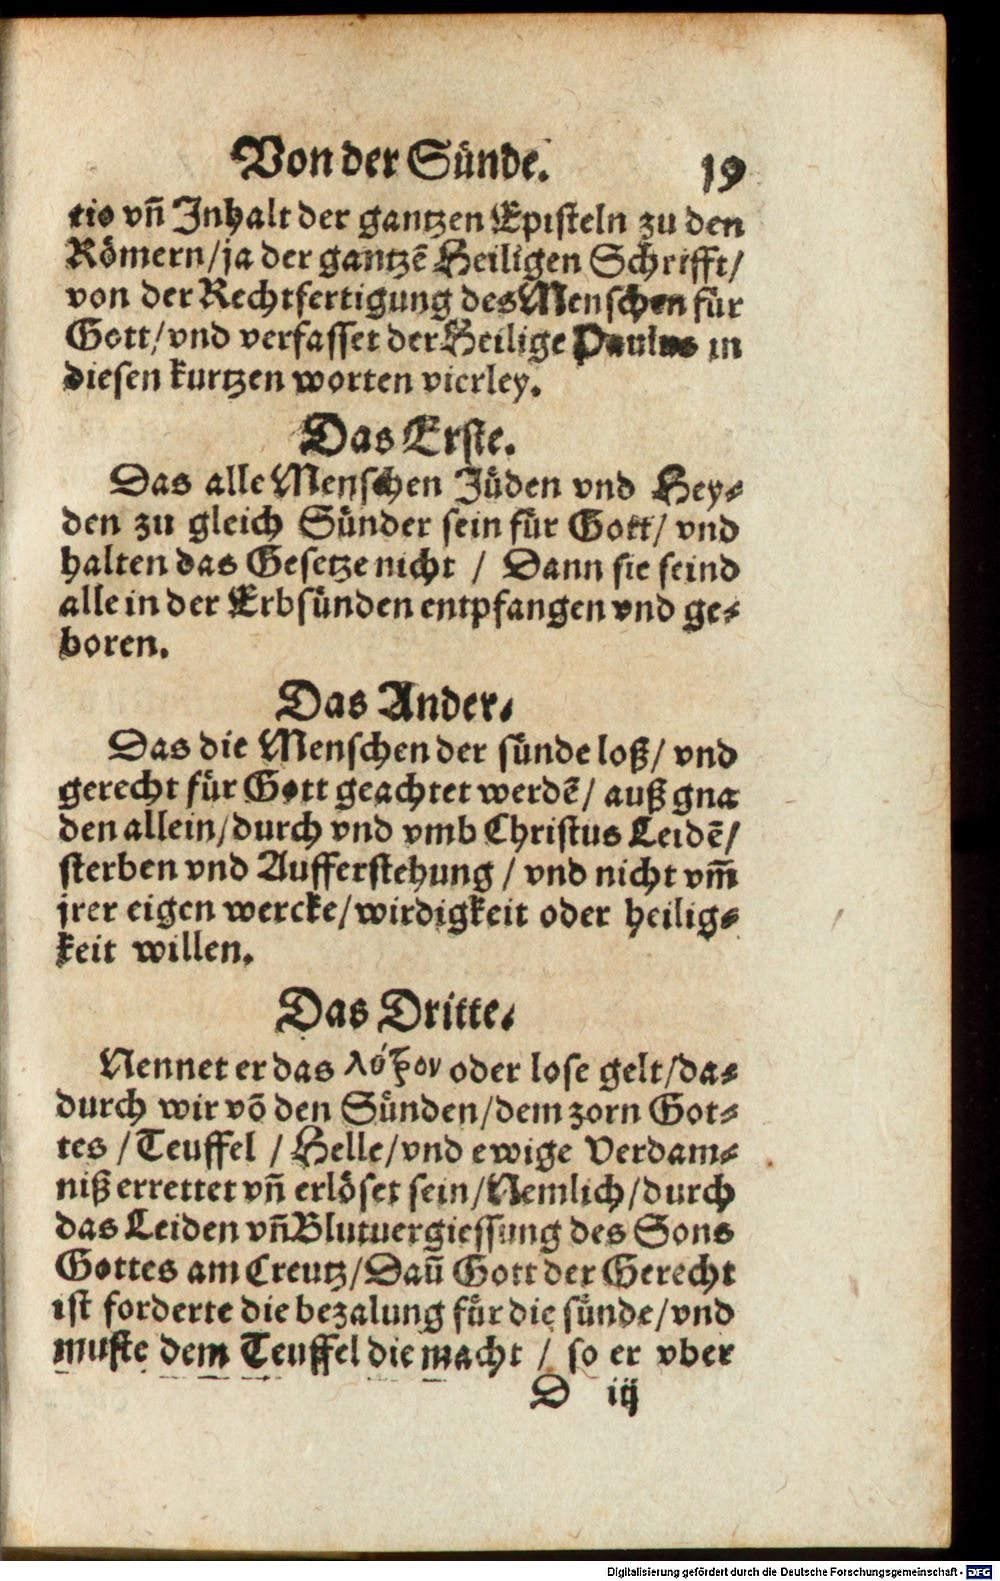 Von der Sünde. 19
tio vn̄ Inhalt der gantzen Episteln zu den
Römern/ja der gantzē Heiligen Schrifft/
von der Rechtfertigung des Menschen für
Gott/vnd verfasset der Heilige Paulus in
diesen kurtzen worten vierley.
Das Erste.
Das alle Menschen Jüden vnd Hey⸗
den zu gleich Sünder sein für Gott/ vnd
halten das Gesetze nicht / Dann sie seind
alle in der Erbsünden entpfangen vnd ge⸗
boren.
Das Ander.
Das die Menschen der sünde loß/ vnd
gerecht für Gott geachtet werdē/ auß gna
den allein/durch vnd vmb Christus Leidē/
sterben vnd Aufferstehung / vnd nicht vm̄
jrer eigen wercke/wirdigkeit oder heilig⸗
keit willen.
Das Dritte.
Nennet er das λύτρον oder lose gelt/da⸗
durch wir võ den Sünden/dem zorn Got⸗
tes /Teuffel / Helle/vnd ewige Verdam⸗
niß errettet vn̄ erlöset sein/Nemlich/durch
das Leiden vn̄ Blutuergiessung des Sons
Gottes am Creutz/Dan̄ Gott der Gerecht
ist forderte die bezalung für die sünde/vnd
muste dem Teuffel die macht / so er vber
D iij
Digitalisierung gefördert durch die Deutsche Forschungsgemeinschaft - DFG